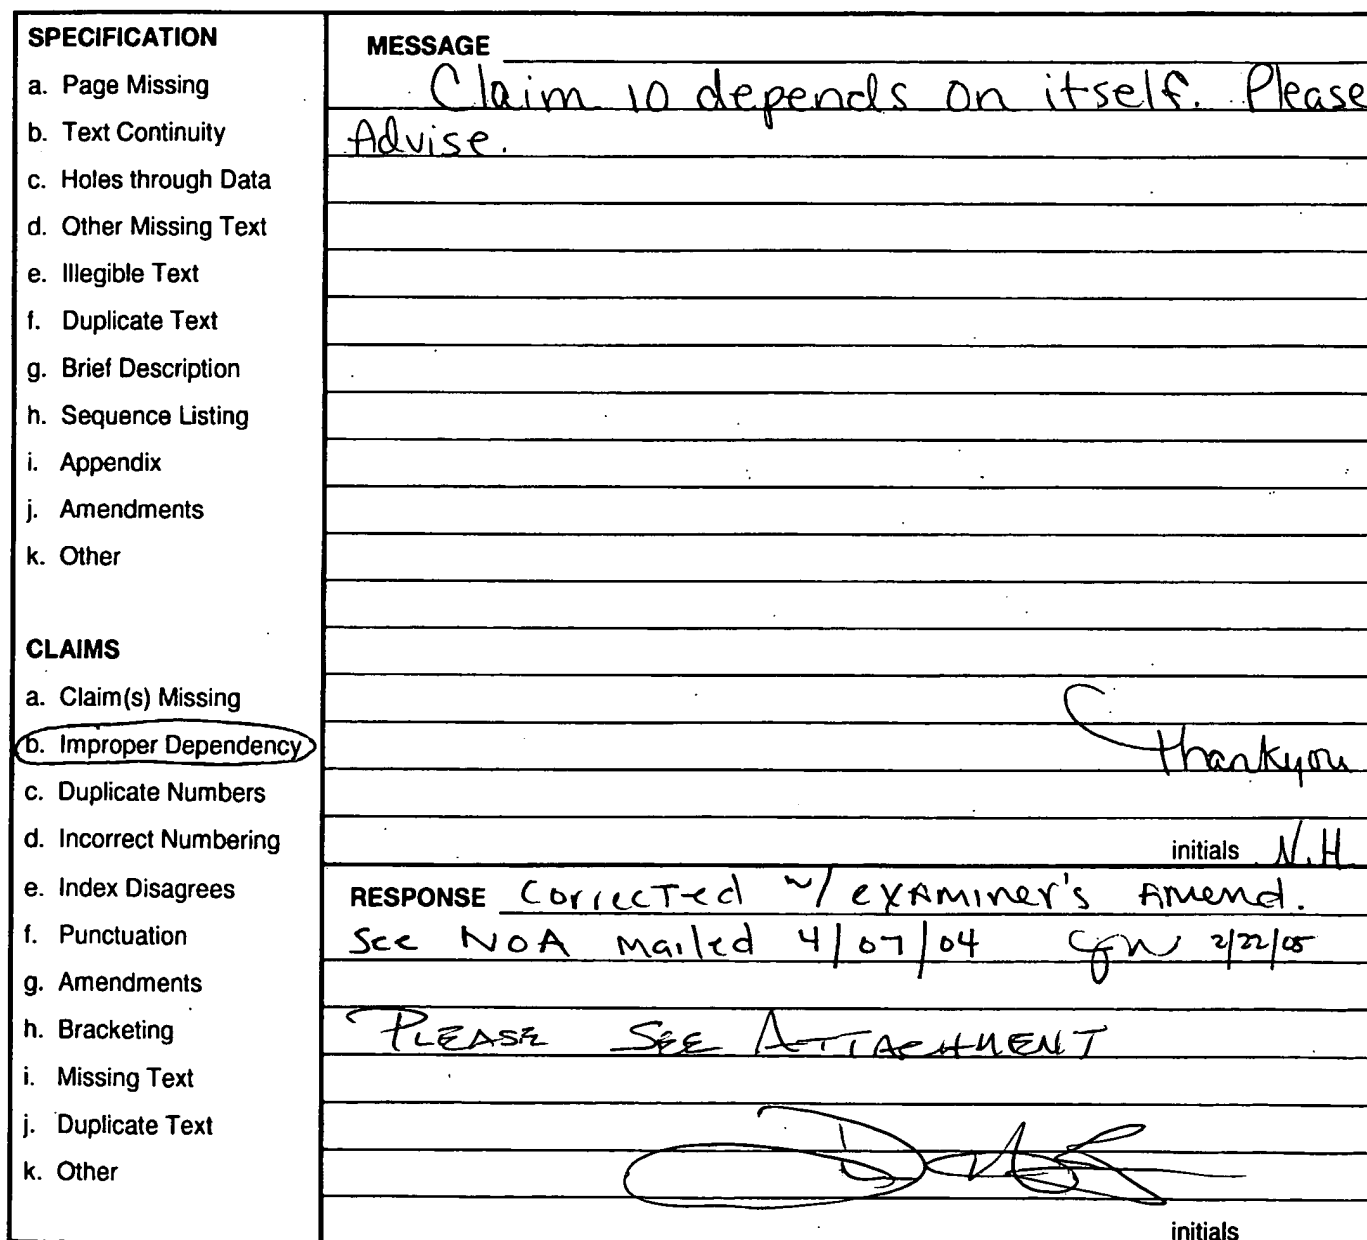 SPECIFICATION
a. Page Missing
b. Text Continuity
c. Holes through Data
d. Other Missing Text
e. Illegible Text
f. Duplicate Text
g. Brief Description
h. Sequence Listing
i. Appendix
j. Amendments
k. Other
CLAIMS
a. Claim(s) Missing
b. Improper Dependency
c. Duplicate Numbers
d. Incorrect Numbering
e. Index Disagrees
f. Punctuation
g. Amendments
h. Bracketing
i. Missing Text
j. Duplicate Text
k. Other
MESSAGE
Claim 10 depends on itself. Please
Advise.
Thankyou
initials N.H
RESPONSE Corrected w/ examiner's Amend.
See NOA mailed 4/07/04 2/22/05
PLEASE SEE ATTACHMENT
initials